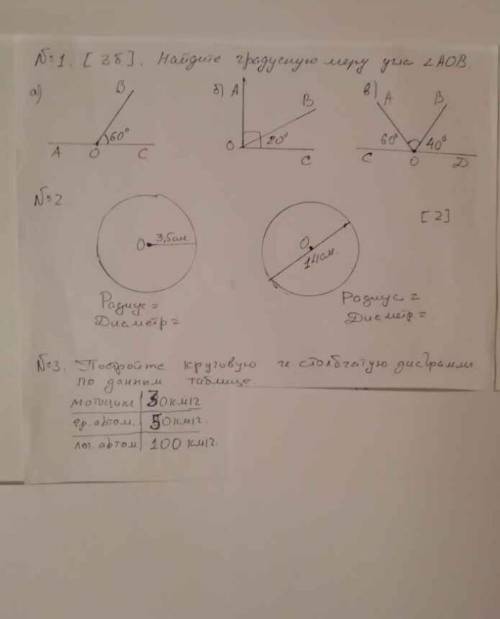 №1. [3б]. Найдите градусную меру угла ∠AOB.
а) б) в)
B
60°
A O C
A
B
20°
O
C
A B
60° 40°
C O D
№2
O 3,5см
O
14см.
[2]
Радиус =
Диаметр =
Радиус =
Диаметр =
№3. Постройте круговую и столбчатую диаграммы
по данным таблице
мотоцикл 30 км/ч
гр. автом. 50 км/ч.
лег. автом 100 км/ч.